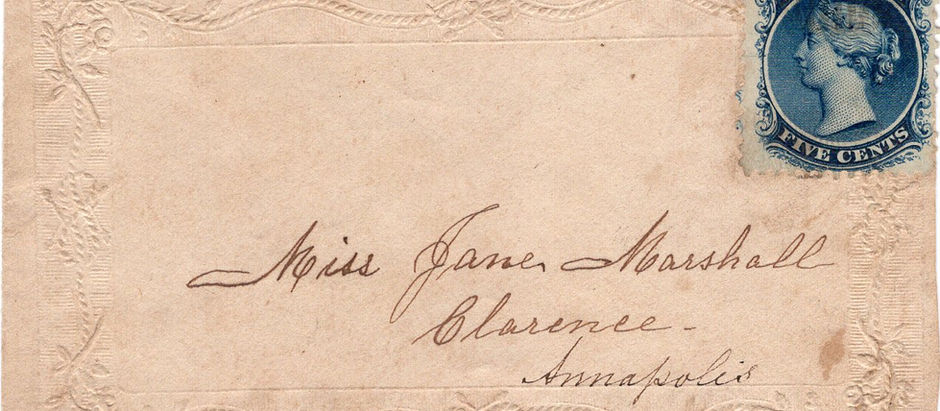 FIVE CENTS
Miss Jane Marshall
Clarence -
Annapolis